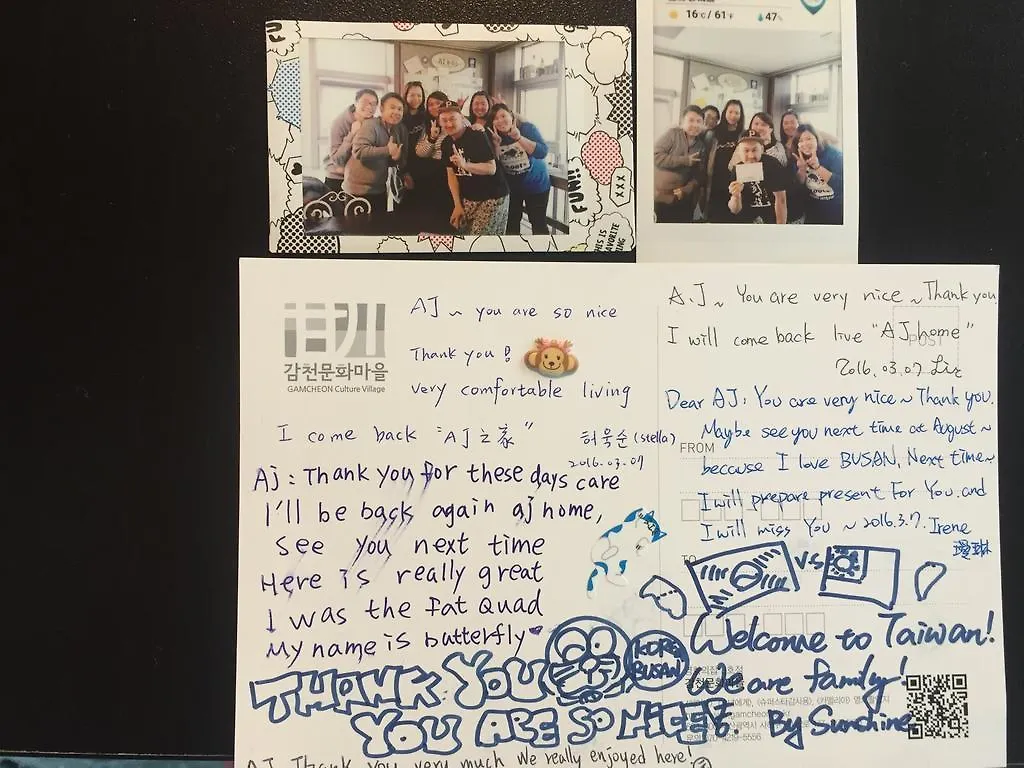 16℃/61℉
47%
FUN!!
XXX
THIS IS
FAVORITE
감천문화마을
GAMCHEON Culture Village
AJ ~ you are so nice
Thank you!
very comfortable living
I come back "AJ之家"
허욱순 (stella)
2016.03.07
Aj: Thank you for these days care
I'll be back again aj home,
see you next time
Here is really great
I was the Fat Quad
My name is butterfly
A.J ~ You are very nice ~ Thank you.
I will come back live "AJ home"
POST
2016.03.07 Liz
Dear AJ: You are very nice ~ Thank you.
Maybe see you next time at August ~
FROM
because I love BUSAN. Next time~
I will prepare present For You. and
I will miss You ~ 2016.3.7. Irene
TO
VS
KOREA
BUSAN
THANK YOU
YOU ARE SO NICE!
Welcome to Taiwan!
We are family!
By Sunshine
감천문화마을
AJ Thank you very much We really enjoyed here!